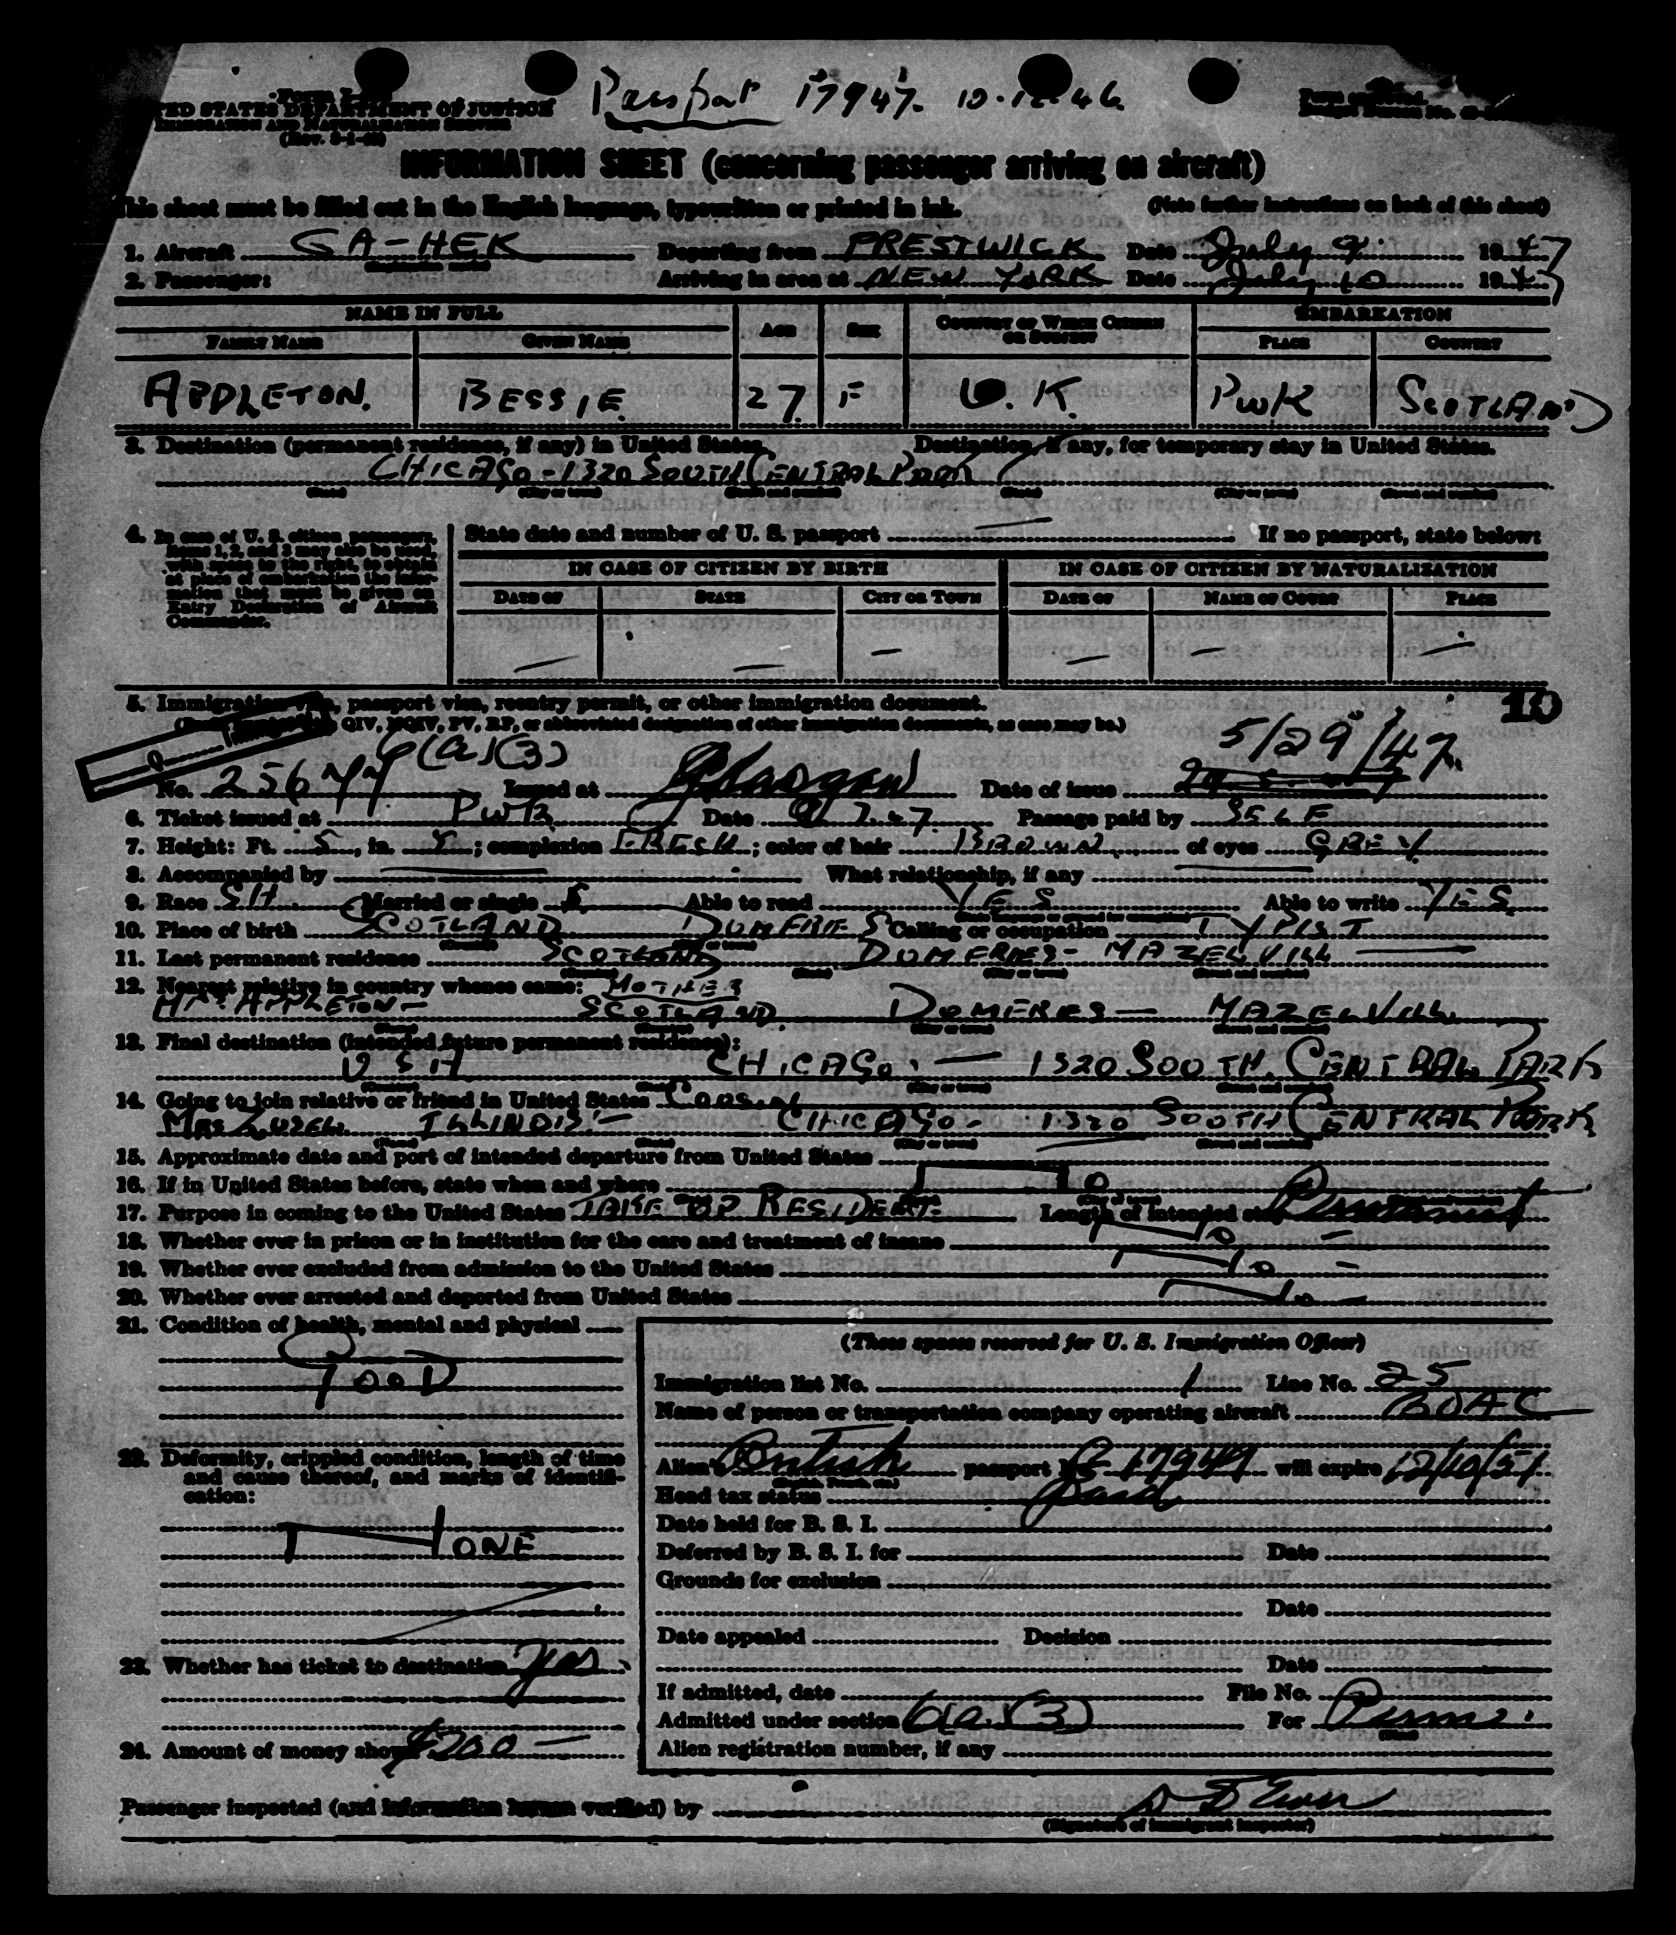 Passport 17947. 10.12.46.
TED STATES DEPARTMENT OF JUSTICE
IMMIGRATION AND NATURALIZATION SERVICE
INFORMATION SHEET (concerning passenger arriving on aircraft)
This sheet must be filled out in the English language, typewritten or printed in ink. (Note further instructions on back of this sheet)
1. Aircraft GA-HEK Departing from PRESTWICK Date July 9. 1947
2. Passenger: Arriving in area at NEW YORK Date July 10 1947
NAME IN FULL AGE SEX COUNTRY OF WHICH CITIZEN OR SUBJECT EMBARKATION
FAMILY NAME GIVEN NAME PLACE COUNTRY
APPLETON. BESSIE 27. F U.K. PWK SCOTLAND
3. Destination (permanent residence, if any) in United States. Destination, if any, for temporary stay in United States.
CHICAGO - 1320 SOUTH CENTRAL PARK
(State) (City or town) (Street and number) (State) (City or town) (Street and number)
4. In case of U. S. citizen passengers, items 1, 2, and 3 may also be used, with space to the right, to obtain at place of embarkation the information that must be given on Entry Declaration of Aircraft Commander.
State date and number of U. S. passport — If no passport, state below:
IN CASE OF CITIZEN BY BIRTH IN CASE OF CITIZEN BY NATURALIZATION
DATE OF STATE CITY OR TOWN DATE OF NAME OF COURT PLACE
— — — — — —
5. Immigration visa, passport visa, reentry permit, or other immigration document. 10
QIV, NQIV, PV, RP, or abbreviated designation of other immigration documents, as case may be.)
6(a)(3) 5/29/47.
No. 25644 Issued at Glasgow Date of issue
6. Ticket issued at PWK Date 9/7.47 Passage paid by SELF
7. Height: Ft. 5, in. 5; complexion FRESH; color of hair BROWN of eyes GREY
8. Accompanied by — What relationship, if any —
9. Race SH. Married or single S Able to read YES Able to write YES.
10. Place of birth SCOTLAND DUMFRIES Calling or occupation TYPIST
11. Last permanent residence SCOTLAND DUMFRIES - MAZELVILL —
12. Nearest relative in country whence came: MOTHER
MRS APPLETON - SCOTLAND. DUMFRIES — MAZELVILL
13. Final destination (intended future permanent residence):
USA CHICAGO. — 1320 SOUTH. CENTRAL PARK
14. Going to join relative or friend in United States COUSIN
MRS ILLINOIS. — CHICAGO - 1320 SOUTH CENTRAL PARK
15. Approximate date and port of intended departure from United States —
16. If in United States before, state when and where No
17. Purpose in coming to the United States TAKE UP RESIDENT. Length of intended stay Permanent
18. Whether ever in prison or in institution for the care and treatment of insane No —
19. Whether ever excluded from admission to the United States No —
20. Whether ever arrested and deported from United States No —
21. Condition of health, mental and physical
GOOD
22. Deformity, crippled condition, length of time and cause thereof, and marks of identification:
NONE
23. Whether has ticket to destination Yes.
24. Amount of money shown $200 —
(These spaces reserved for U. S. Immigration Officer)
Immigration list No. 1 Line No. 25
Name of person or transportation company operating aircraft BOAC
Alien's British passport No. 17947 will expire 12/10/51
Head tax status paid
Date held for B. S. I.
Deferred by B. S. I. for Date
Grounds for exclusion
Date
Date appealed Decision
Date
If admitted, date File No.
Admitted under section 6(a)(3) For Perm.
Alien registration number, if any
Passenger inspected (and information hereon verified) by
(Signature of immigrant inspector)